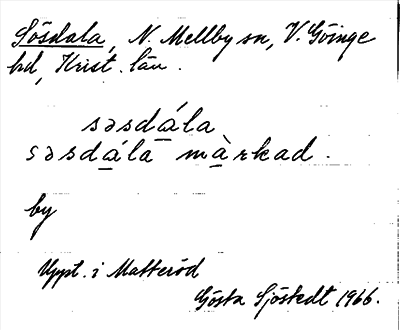 Sösdala, N. Mellby sn, V. Göinge
hd, Krist. län.
səsdála
səsdála màrkad.
by
Uppt. i Matteröd
Gösta Sjöstedt 1966.